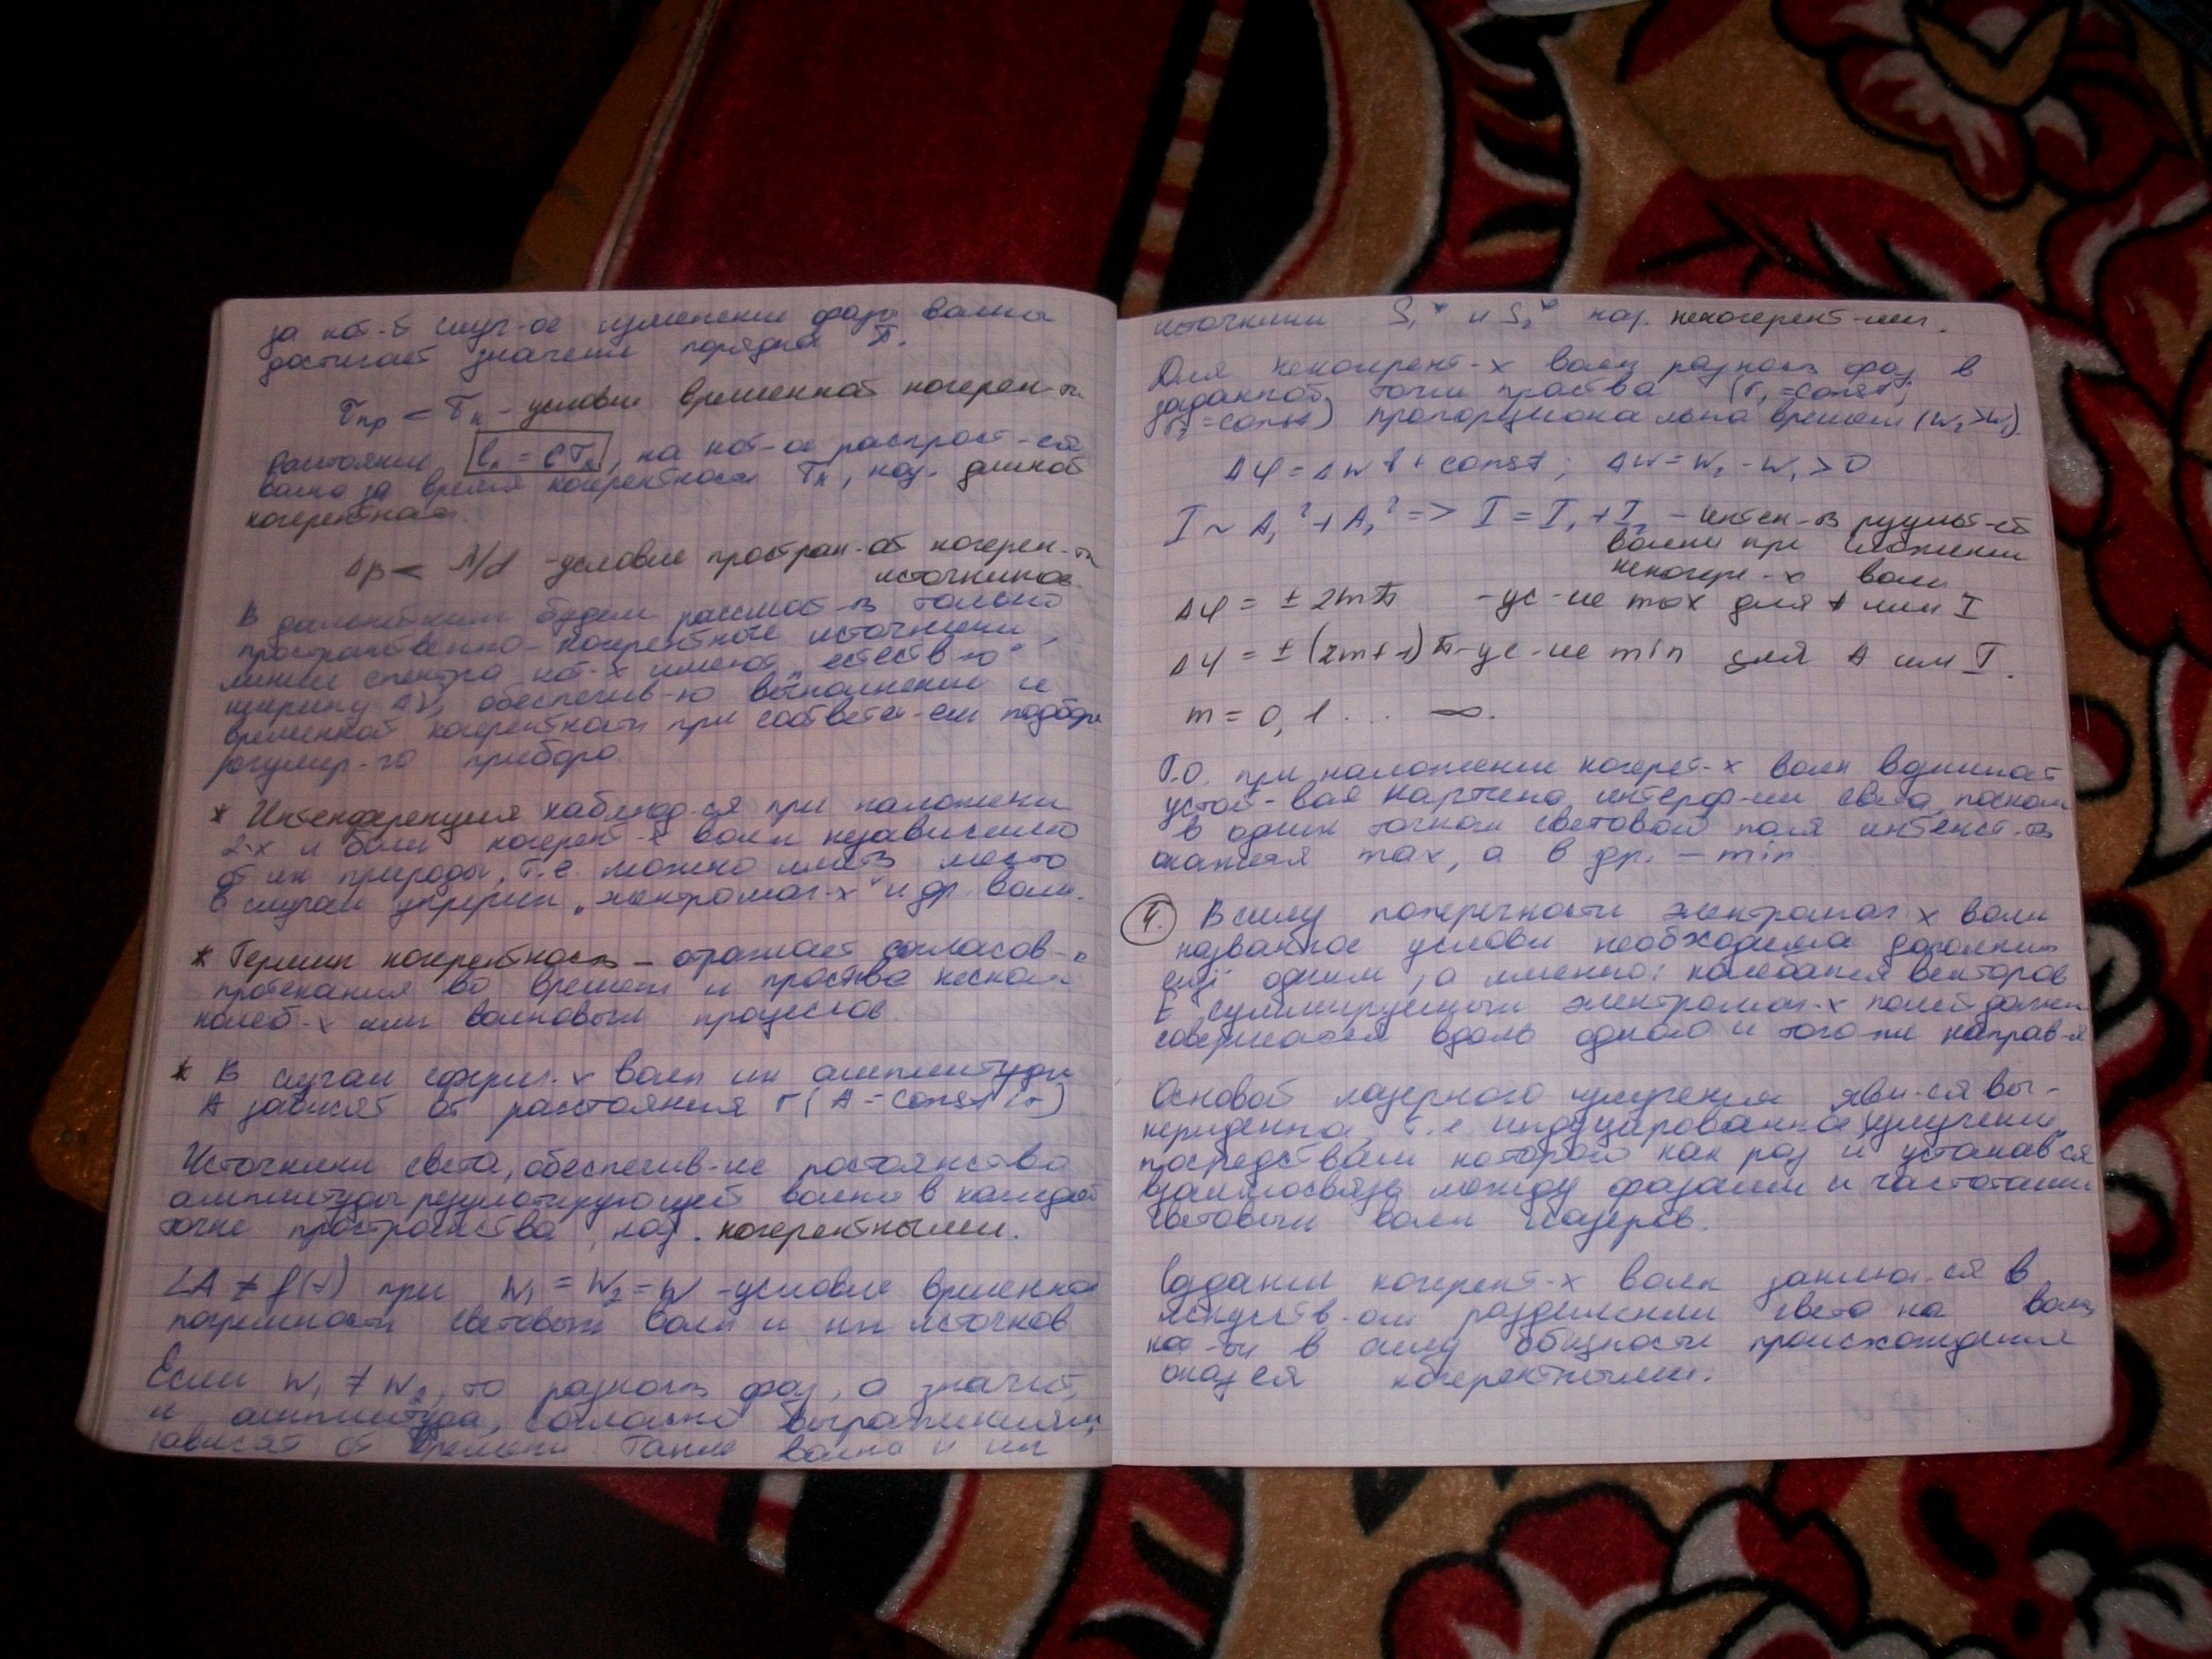 за кот-й случ-ое изменение фазы волны
достигает значение порядка π.
τпр < τк - условие временной когерен-ти
Расстояние lк = cτк, на кот-ое распрост-ся
волна за время когерентности τк, наз. длиной
когерентности.
Δβ < λ/d - условие простран-ой когерен-ти
источников.
В дальнейшем будем рассмат-ть только
пространственно-когерентные источники,
линии спектра кот-х имеют „естеств-ю"
ширину Δν, обеспечив-ю выполнение и
временной когерентности при соответс-ем подборе
регулир-го прибора.
* Интенференция наблюд-ся при наложении
2-х и более когерент-х волн независимо
от их природы, т.е. можно иметь место
в случаи упругих, электромаг-х и др. волн.
* Термин когерентность – отражает согласов-
протекания во времени и простве нескол
колеб-х или волновых процессов.
* В случаи сферич-х волн их амплитуды
A зависят от расстояния r (A = const/r)
Источники света, обеспечив-ие постоянство
амплитуды результирующей волны в каждой
точке пространства, наз. когерентными.
A ≠ f(t) при W₁ = W₂ = W - условие временной
когерентности световых волн и их источков
Если W₁ ≠ W₂, то разность фаз, а значит,
и амплитуда, согласно выражениям,
зависят от времени. Такие волны и их
источники S₁* и S₂* наз. некогерент-ми.
Для некогерент-х волн разность фаз в
заданной точки проства (r₁ = const;
r₂ = const) пропорциональна времени (W₂ > W₁).
Δφ = ΔWt + const; ΔW = W₂ - W₁ > 0
I ~ A₁² + A₂² => I = I₁ + I₂ - интен-ть результ-ей
волны при сложении
некогере-х волн
Δφ = ± 2mπ - ус-ие max для A или I
Δφ = ± (2m+1)π - ус-ие min для A или I.
m = 0, 1 ... ∞.
Т.О. при наложении когерет-х волн возникает
устой-вая картина интерф-ии света, поскол
в одних точках светового поля интенст-ть
окажется max, а в др. – min
4. В силу поперечности электромаг-х волн
названное условие необходимо дополнить
ещё одним, а именно: колебания векторов
E суммируемых электромаг-х полей должн
совершаться вдоль одного и того же направ-я
Основой лазерного излучения явл-ся вы-
нужденное, т.е. индуцированное излучение,
посредствам которого как раз и устанав-ся
взаимосвязь между фазами и частотами
световых волн лазеров.
Создание когерент-х волн заключ-ся в
искусств-ом разделении света на волн,
кот-ые в силу общности происхождения
окаж-ся когерентными.